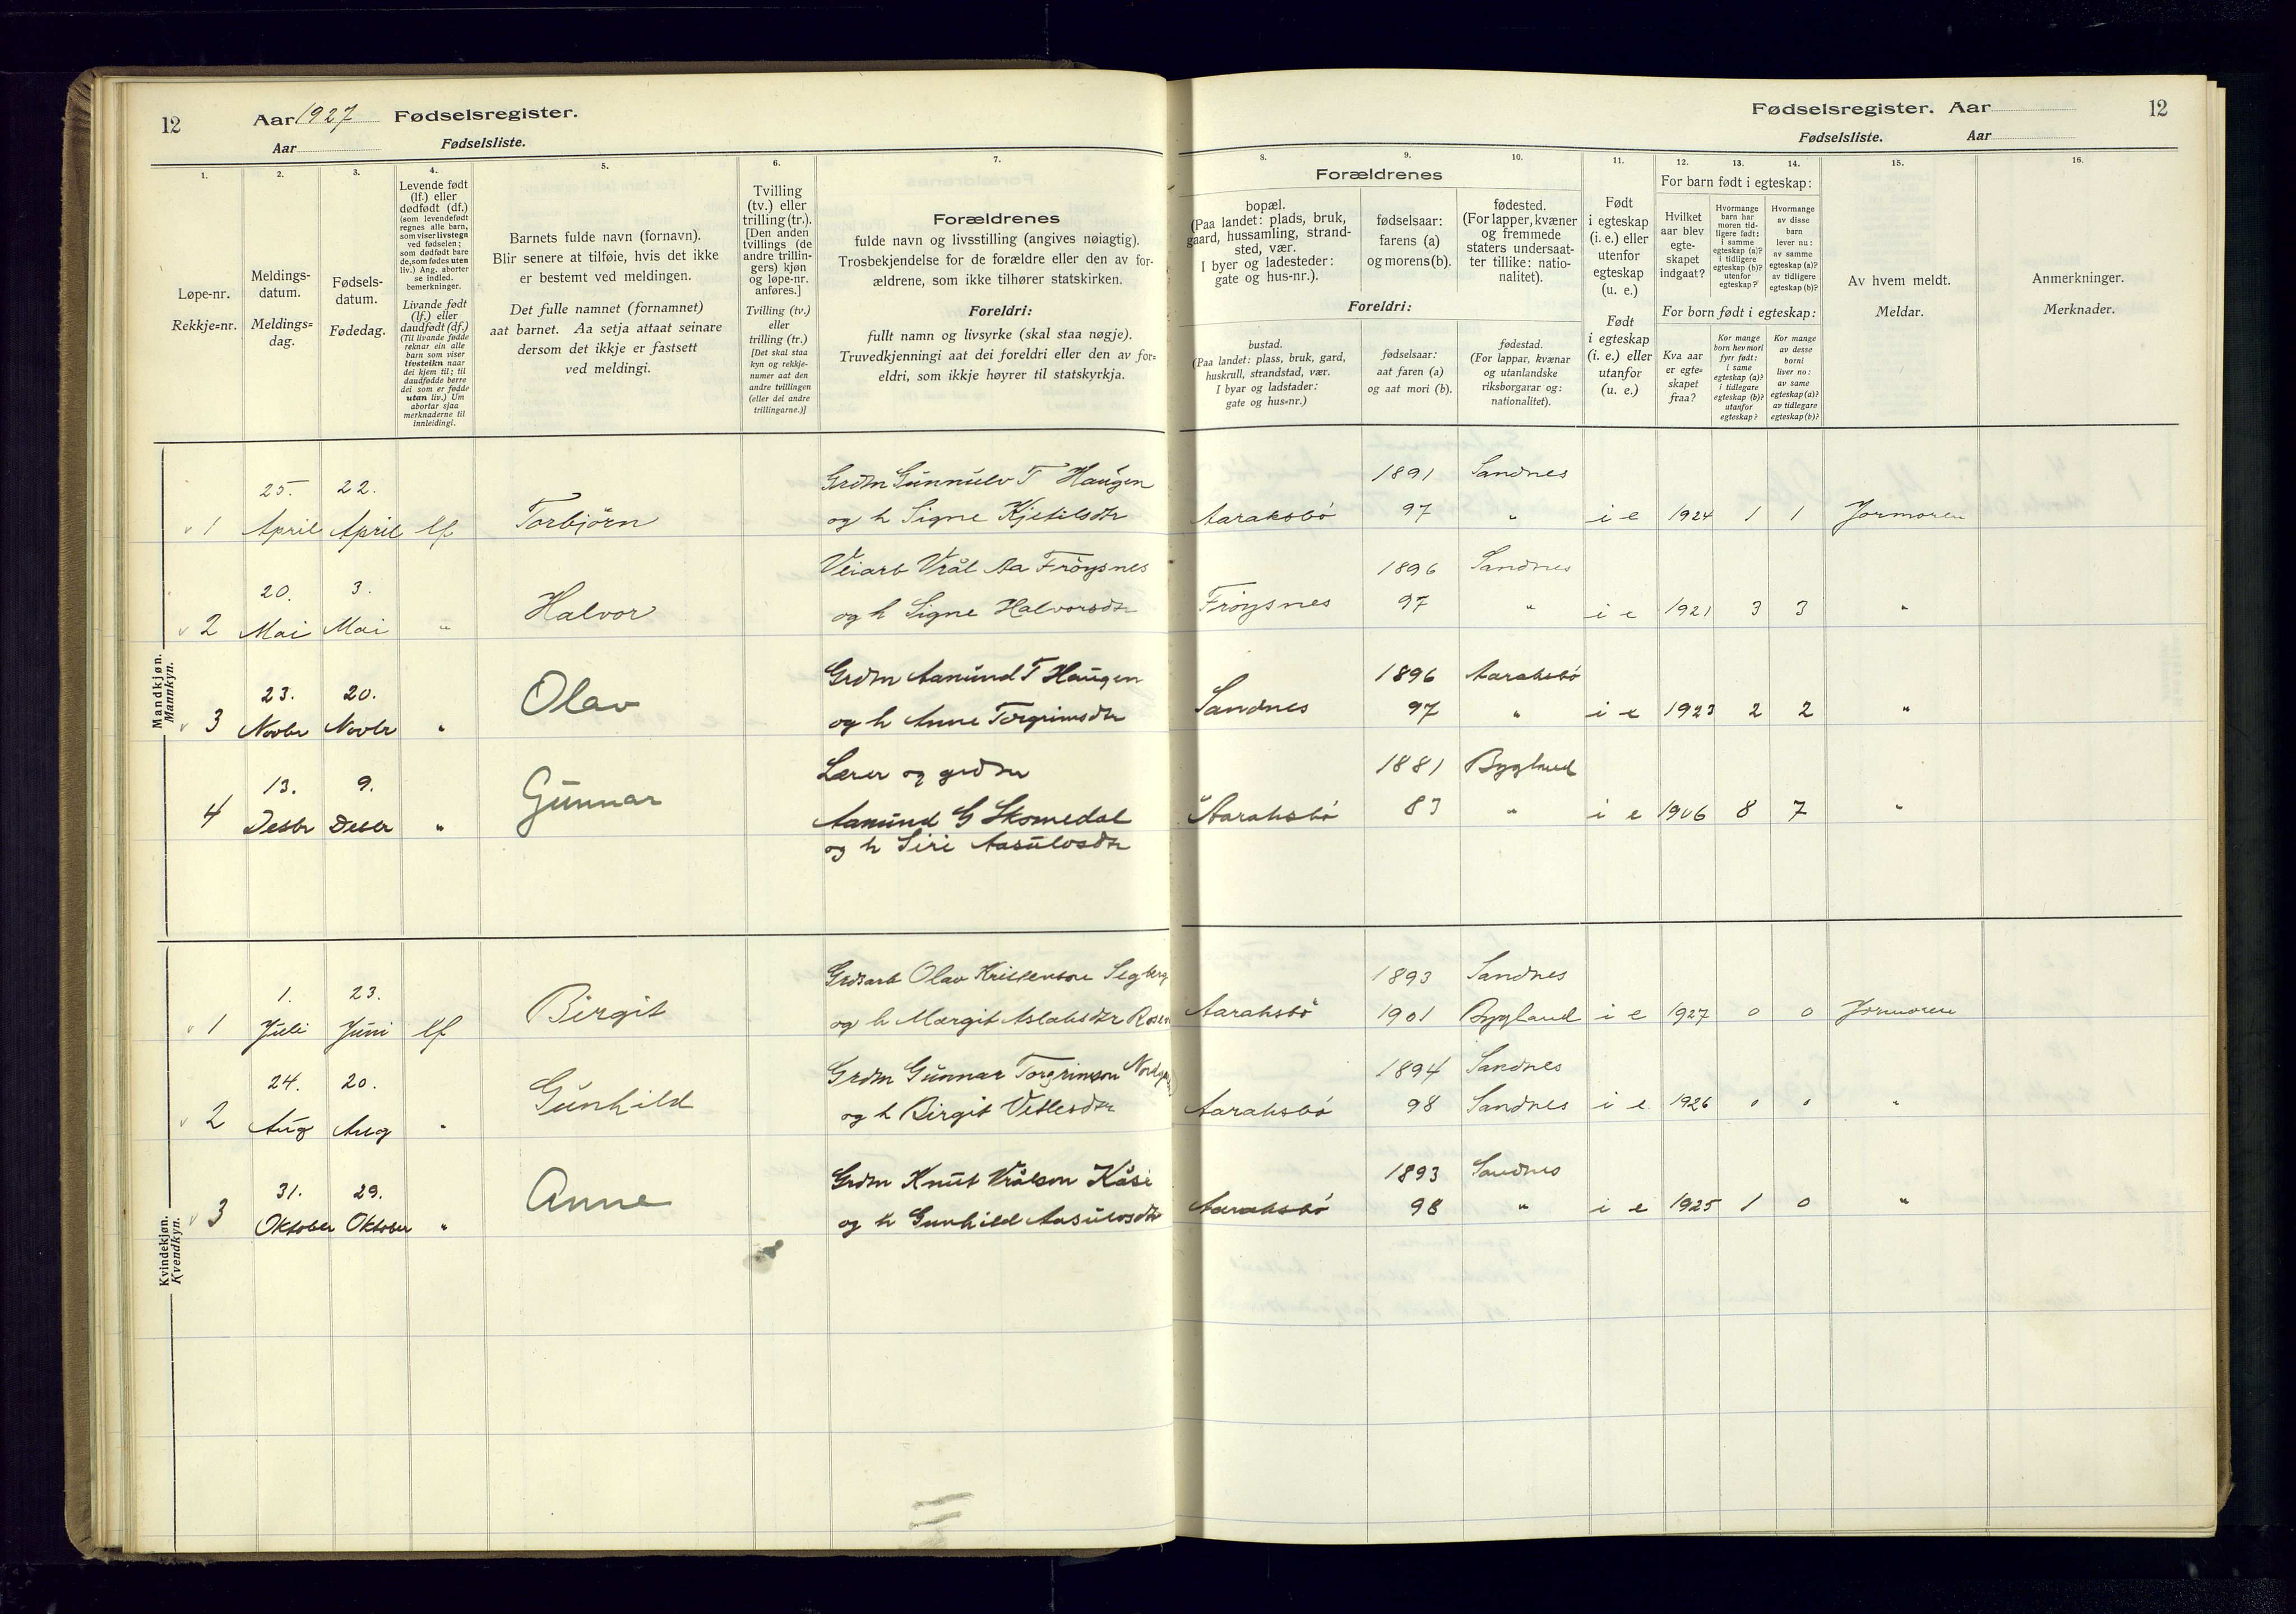 12
Aar 1927 Fødselsregister.
Aar Fødselsliste.
1.
2.
3.
4.
5.
6.
7.
Løpe-nr.
Rekkje=nr.
Meldings-
datum.
Meldings=
dag.
Fødsels-
datum.
Fødedag.
Levende født
(lf.) eller
dødfødt (df.)
(som levendefødt
regnes alle barn,
som viser livstegn
ved fødselen;
som dødfødt bare
de, som fødes uten
liv.) Ang. aborter
se indled.
bemerkninger.
Livande født
(lf.) eller
daudfødt (df.)
(Til livande fødde
reknar ein alle
barn som viser
livsteikn naar
dei kjem til; til
daudfødde berre
dei som er fødde
utan liv.) Um
abortar sjaa
merknaderne til
innleidingi.
Barnets fulde navn (fornavn).
Blir senere at tilføie, hvis det ikke
er bestemt ved meldingen.
Det fulle namnet (fornamnet)
aat barnet. Aa setja attaat seinare
dersom det ikkje er fastsett
ved meldingi.
Tvilling
(tv.) eller
trilling (tr.).
[Den anden
tvillings (de
andre trillin-
gers) kjøn
og løpe-nr.
anføres.]
Tvilling (tv.)
eller
trilling (tr.)
[Det skal staa
kyn og rekkje-
numer aat den
andre tvillingen
(eller dei andre
trillingarne.)]
Forældrenes
fulde navn og livsstilling (angives nøiagtig).
Trosbekjendelse for de forældre eller den av for-
ældrene, som ikke tilhører statskirken.
Foreldri:
fullt namn og livsyrke (skal staa nøgje).
Truvedkjenningi aat dei foreldri eller den av for=
eldri, som ikkje høyrer til statskyrkja.
Fødselsregister. Aar
12
Fødselsliste. Aar
8.
9.
10.
11.
12.
13.
14.
15.
16.
Forældrenes
bopæl.
(Paa landet: plads, bruk,
gaard, hussamling, strand-
sted, vær.
I byer og ladesteder:
gate og hus-nr.).
fødselsaar:
farens (a)
og morens (b).
fødested.
(For lapper, kvæner
og fremmede
staters undersaat-
ter tillike: natio-
nalitet).
Foreldri:
bustad.
(Paa landet: plass, bruk, gard,
huskrull, strandstad, vær.
I byar og ladstader:
gate og hus=nr.)
fødselsaar:
aat faren (a)
og aat mori (b).
fødestad.
(For lappar, kvænar
og utanlandske
riksborgarar og:
nationalitet).
Født
i egteskap
(i. e.) eller
utenfor
egteskap
(u. e.)
Født
i egteskap
(i. e.) eller
utanfor
(u. e.)
For barn født i egteskap:
Hvilket
aar blev
egte-
skapet
indgaat?
Hvormange
barn har
moren tid-
ligere født:
i samme
egteskap (a)?
i tidligere
egteskap (b)?
utenfor
egteskap?
Hvormange
av disse
barn
lever nu:
av samme
egteskap (a)?
av tidligere
egteskap (b)?
For born født i egteskap:
Kva aar
er egte=
skapet
fraa?
Kor mange
born hev mori
fyrr født:
i same
egteskap (a)?
i tidlegare
egteskap (b)?
utanfor
egteskap?
Kor mange
av desse
borni
liver no:
av same
egteskap (a)?
av tidlegare
egteskap (b)?
Av hvem meldt.
Meldar.
Anmerkninger.
Merknader.
Mandkjøn.
Mannkyn.
25. 22. Grdm Gunnulv T Haugen 1891 Sandnes
v 1 April April lf Torbjörn og h Signe Kjetilsdtr Aaraksbö 97 " i e 1924 1 1 Jormoren
20. 3. Veiarb Vrål Aa Fröysnes 1896 Sandnes
v 2 Mai Mai " Halvor og h Signe Halvorsdtr Fröysnes 97 " i e 1921 3 3 "
23. 20. Grdm Aamund T Haugen 1896 Aaraksbö
v 3 Novbr Novbr " Olav og h Anne Torgrimsdtr Sandnes 97 " i e 1923 2 2 "
13. 9. Lærer og grdm 1881 Bygland
4 Desbr Desbr " Gunnar Aamund G Skomedal Aaraksbö 83 " i e 1906 8 7 "
og h Siri Aasulvsdtr
Kvindekjøn.
Kvendkyn.
1. 23. Grdsarb Olav Kristenson Segberg 1893 Sandnes
v 1 Juli Juni lf Birgit og h Margit Aslaksdtr Rosen Aaraksbö 1901 Bygland i e 1927 0 0 Jormoren
24. 20. Grdm Gunnar Torgrimson 1894 Sandnes
v 2 Aug Aug " Gunhild og h Birgit Vetlesdtr Aaraksbö 98 Sandnes i e 1926 0 0 "
31. 29. Grdm Knut Vrålson Kåsi 1893 Sandnes
v 3 Oktober Oktober " Anne og h Gunhild Aasulvsdtr Aaraksbö 98 " i e 1925 1 0 "